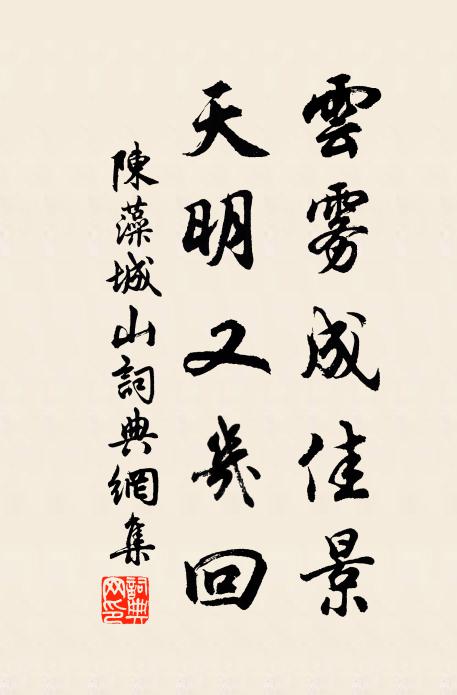 雲雾成佳景
天明又幾回
陳藻城山詞典網集
詞典网印